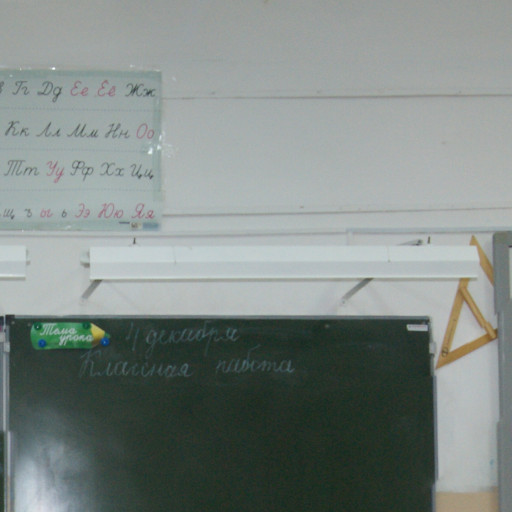 Гг Дд Ее Ёё Жж
Кк Лл Мм Нн Оо
Тт Уу Фф Хх Цц
щ ъ ы ь Ээ Юю Яя
Тема
урока
4 декабря
Классная работа